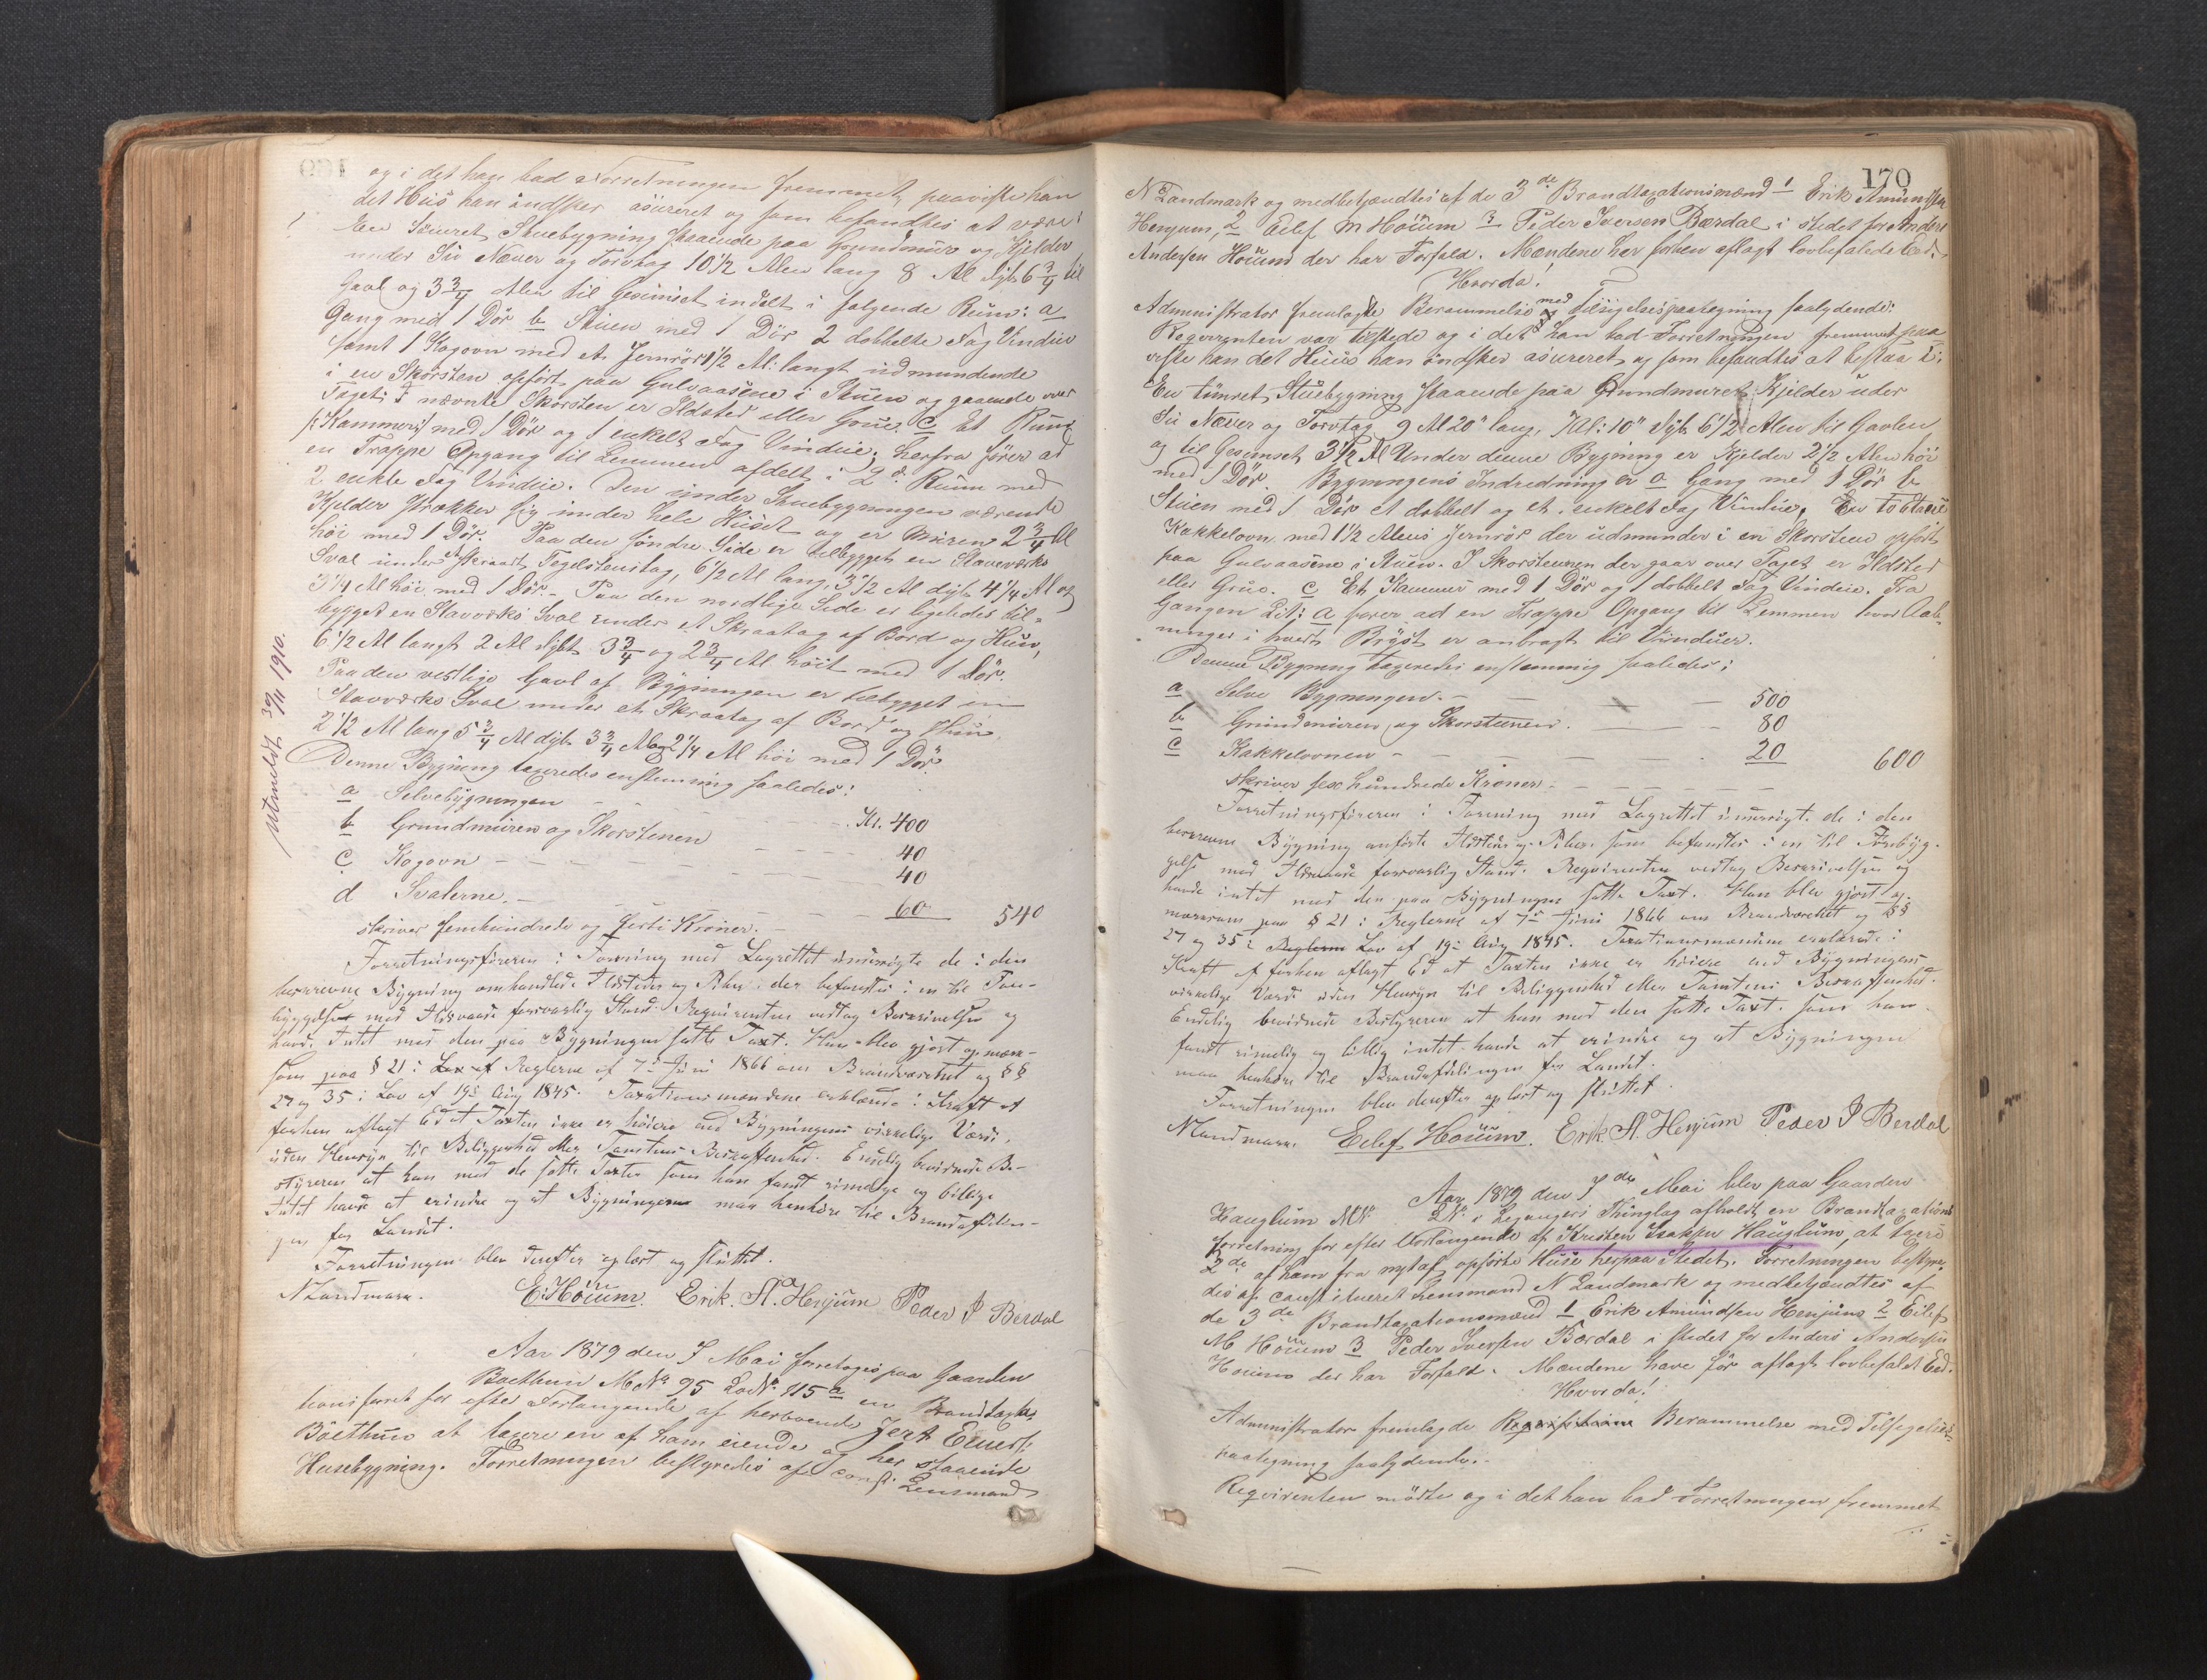 og i det han bad Forretningen fremmet, paaviste han
det Huus han indsker asureret og som befandtes at være:
En tömret Stuebygning staaende paa Grundmur og Kjelder
under Su Næver og Torvtag 10 1/2 Alen lang 8 Al dyb 6 3/4 til
Gavl og 3 3/4 Alen til Gesimset indelt i følgende Rum: a
Gang med 1 Dör b Stuen med 1 Dör 2 dobbelte Fag Vinduer
samt 1 Kogovn med et Jernrör 1 1/2 Al: langt udmundende
i en Skorsten opfört paa Gulvaasene i Stuen og gaaende over
Taget. I nævnte Skorsten er Ildsted eller Grue. C Et Rum
/: Kammers :/ med 1 Dör og 1 enkelt Fag Vindue; herfra fører ad
en Trappe Opgang til Lemmen afdelt i 2de Rum med
2 enkle Fag Vindue. Den under Stuebygningen værende
Kjelder strækker sig under hele Huset og er Muren 2 3/4 Al
höi med 1 Dör. Paa den söndre Side er tilbygget en Stavværks
Sval under Skraat Tegelstenstag, 6 1/2 Al lang, 3 1/2 Al dyb 4 1/4 Al og
3 1/4 Al höi med 1 Dör. Paa den nordlige Side er ligeledes til-
bygget en Stavværks Sval under et Skraatag af Bord og Hun,
6 1/2 Al langt 2 Al dybt 3 3/4 og 2 3/4 Al höit med 1 Dör.
Paa den vestlige Gavl af Bygningen er tilbygget en
Stavværks Sval under et Skraatag af Bord og Hun,
2 1/2 Al lang 5 3/4 Al dyb 3 3/4 Al og 2 1/4 Al höi med 1 Dör
Denne Bygning taxeredes enstemmig saaledes:
a Selvebygningen Kr. 400
b Grundmuren og Skorstenen 40
c Kogovn 40
d Svalerne 60 540
skriver femhundrede og firti Kroner.
Forretningsföreren i Forening med Lagrettet undersögte de i den
beskrevne Bygning omhandlede Ildsteder og Piber der befandtes i en til Fore-
byggelse mod Ildsvaade forsvarlig Stand. Requirenten vedtog Beskrivelsen og
havde Intet mod den paa Bygningen satte Taxt. Han blev gjort opmærk-
som paa § 21 i Lov af Reglerne af 7de Juni 1866 om Brandvæsenet og §§
27 og 35 i Lov af 19de Aug 1845. Taxationsmændene erklærede i Kraft af
forhen aflagt Ed at Taxten ikke er höiere end Bygningens virkelige Værdi,
uden Hensyn til Beliggenhed eller Tomtens Beskaffenhed. Endelig bevidnede Be-
styreren at han mod de satte Taxter som han fandt rimelige og billige
Intet havde at erindre og at Bygningerne maa henhöre til Brandafdelin-
gen for Landet.
Forretningen blev derefter oplæst og sluttet.
N Landmark. E. Höium. Erik. A. Henjum Peder I Berdal
Aar 1879 den 7 Mai foretoges paa Gaarden
Boethun M No 95 Lo No 115 a en Brandtaxa-
tionsforret for efter Forlangende af herboende Jert Einers:
Böethun at taxere en af ham eiende og her staaende
Husebygning. Forretningen bestyredes af const. Lensmand
Utmeldt 30/11 1910.
170
N Landmark og medbetjendtes af de 3de Brandtaxationsmænd 1 Erik Amundsen
Henjum, 2 Eilef M Höium 3 Peder Iversen Bærdal i stedet for Anders
Andersen Höium der har Forfald. Mændene har forhen aflagt lovbefalede Ed.
Hvorda!
Administrator fremlagde Berammelse med Tilsigelsespaategning saalydende:
Reqvirenten var tilstede og i det han bad Forretningen fremmet paa
viste han det Huus han indsker asureret og som befandtes at bestaa i:
En tömret Stuebygning staaende paa Grundmuret Kjelder under
Su Næver og Torvtag 9 Al 20" lang, 7 Al: 10" dyb 6 1/2 Alen til Gavlen
og til Gesimset 3 1/2 Al Under denne Bygning er Kjelder 2 1/2 Alen höi
med 1 Dör. Bygningens Indredning er a Gang med 1 Dör b
Stuen med 1 Dör et dobbelt og et enkelt Fag Vindue, En toetaies
Kakkelovn med 1 1/2 Alens Jernrör der udmunder i en Skorsten opfört
paa Gulvaasene i Stuen. I Skorstenen der gaar over Taget er Ildsted
eller Grue. c Et Kammer med 1 Dör og 1 dobbelt Fag Vindue. Fra
Gangen Lit: a fører ad en Trappe Opgang til Lemmen hvor Aab-
ninger i hvert Bröst er anbragt til Vinduer.
Denne Bygning taxeredes enstemmig saaledes:
a Selve Bygningen 500
b Grundmuren og Skorstenen. 80
c Kakkelovnen 20 600
skriver sex hundrede Kroner
Forretningsföreren i Forening med Lagrettet undersögte de i den
beskrevne Bygning anförte Ildsteder og Piber som befandtes i en til Forebyg-
gelse mod Ildsvaade forsvarlig Stand. Reqvirenten vedtog Beskrivelsen og
havde intet mod den paa Bygningen satte Taxt. Han blev gjort op-
mærksom paa § 21 i Reglerne af 7de Juni 1866 om Brandvæsenet og §§
27 og 35 i Reglerne Lov af 19de Aug 1845. Taxationsmændene erklærede i
Kraft af forhen aflagt Ed at Taxten ikke er höiere end Bygningens
virkelige Værdi uden Hensyn til Beliggenhed eller Tomtens Beskaffenhed.
Endelig bevidnede Bestyreren at han mod den satte Taxt, som han
fandt rimelig og billig intet havde at erindre og at Bygningen
maa henhöre til Brandafdelingen for Landet.
Forretningen blev derefter oplæst og sluttet.
N Landmark. Eilef Höium. Erik. A. Henjum Peder I Berdal
Aar 1879 den 7de Mai blev paa Gaarden
Hauglum M No L No i Leganger Thinglag afholdt en Brandtaxations
forretning for efter Forlangende af Kristen Isaksen Hauglum, at taxere
2de af ham fra nyt af opförte Huse her paa Stedet. Forretningen bestyre-
des af constitueret Lensmand N Landmark og medbetjendtes af
de 3de Brandtaxationsmænd 1 Erik Amundsen Henjum 2 Eilef
M Höium 3 Peder Iversen Bærdal i stedet for Anders Andersen
Höium der har Forfald. Mændene have för aflagt lovbefaldt Ed.
Hvorda!
Administrator fremlagde Reqvisition Berammelse med Tilsigelses-
paategning saalydende.
Reqvirenten mödte og i det han bad Forretningen fremmet